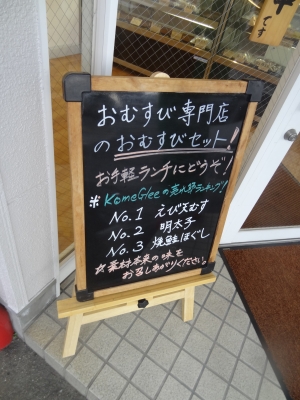 おむすび専門店
のおむすびセット!
お手軽ランチにどうぞ!
※KomeGleeの売れ筋ランキング!
No.1 えび天むす
No.2 明太子
No.3 焼鮭ほぐし
☆素材本来の味を
お召しあがりください。
です